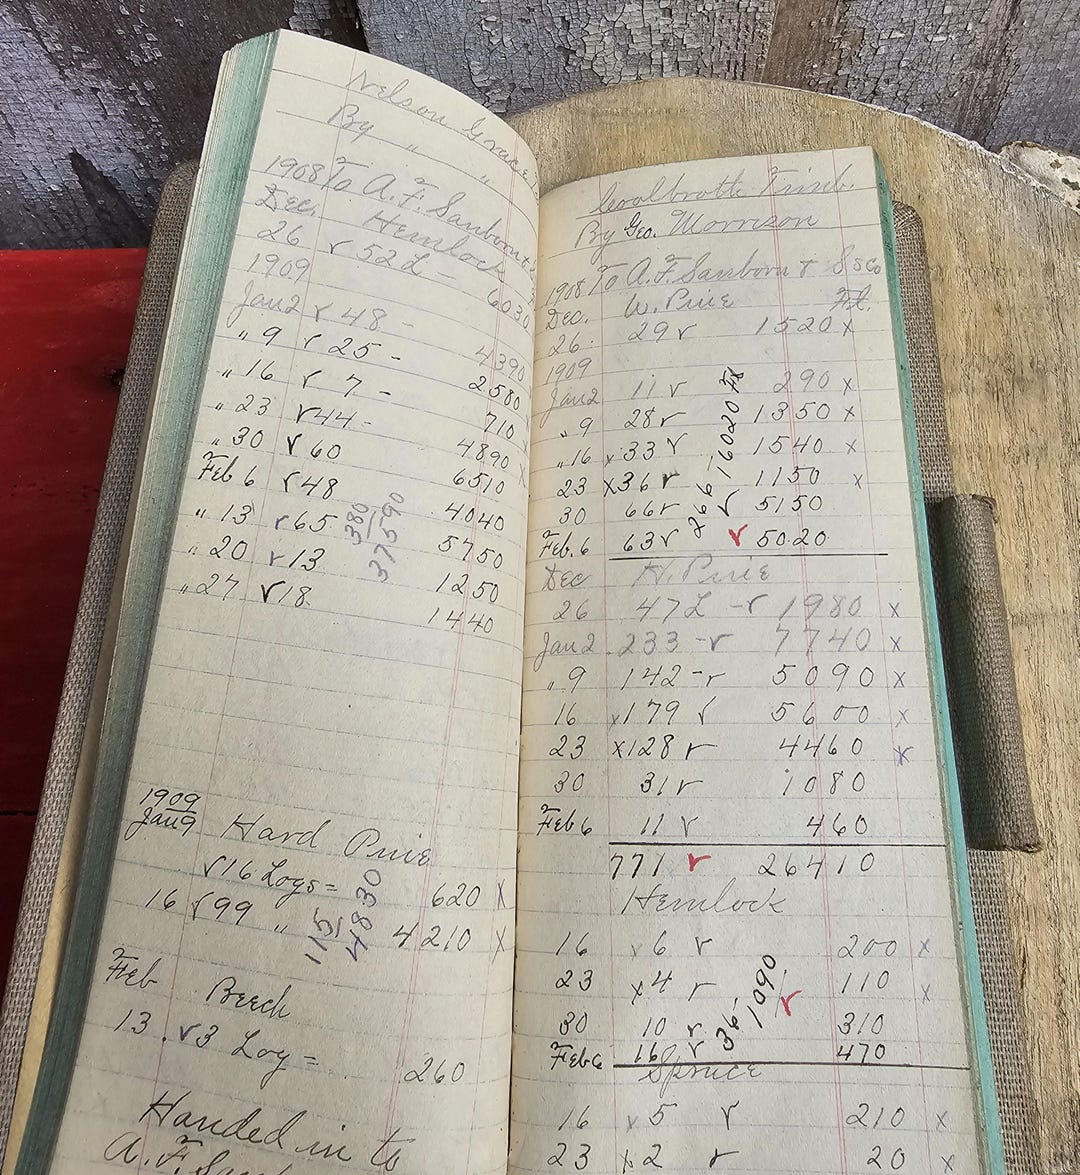 Nelson
By " "
1908 To A. F. Sanborn +
Dec. Hemlock
26 r 52 L 6030
1909
Jan 2 r 48 - 4390
" 9 r 25 - 2580
" 16 r 7 - 710
" 23 r 44 - 4890 x
" 30 r 60 6510
Feb 6 r 48 4040
" 13 r 65 5750
" 20 r 13 1250
" 27 r 18 1440
380
37590
1909
Jan 9 Hard Pine
r 16 Logs = 620 x
16 r 99 " 4210 x
115
4830
Feb Beech
13 r 3 Log = 260
Handed in to
A. F. Sanb
By Geo. Morrison
1908 To A. F. Sanborn + S s Co
Dec. W. Pine Ft.
26. 29 r 1520 x
1909
Jan 2 11 r 290 x
" 9 28 r 1350 x
" 16 x 33 r 1540 x
23 x 36 r 1150 x
30 66 r 5150
Feb. 6 63 r r 5020
266 - 16020 Ft
r
Dec H. Pine
26 47 L - r 1980 x
Jan 2 233 - r 7740 x
" 9 142 - r 5090 x
16 x 179 r 5600 x
23 x 128 r 4460 x
30 31 r 1080
Feb 6 11 r 460
771 r 26410
Hemlock
16 x 6 r 200 x
23 x 4 r 110 x
30 10 r 310
Feb 6 16 r 470
36 - 1090
r
Spruce
16 x 5 r 210 x
23 x 2 r 20 x